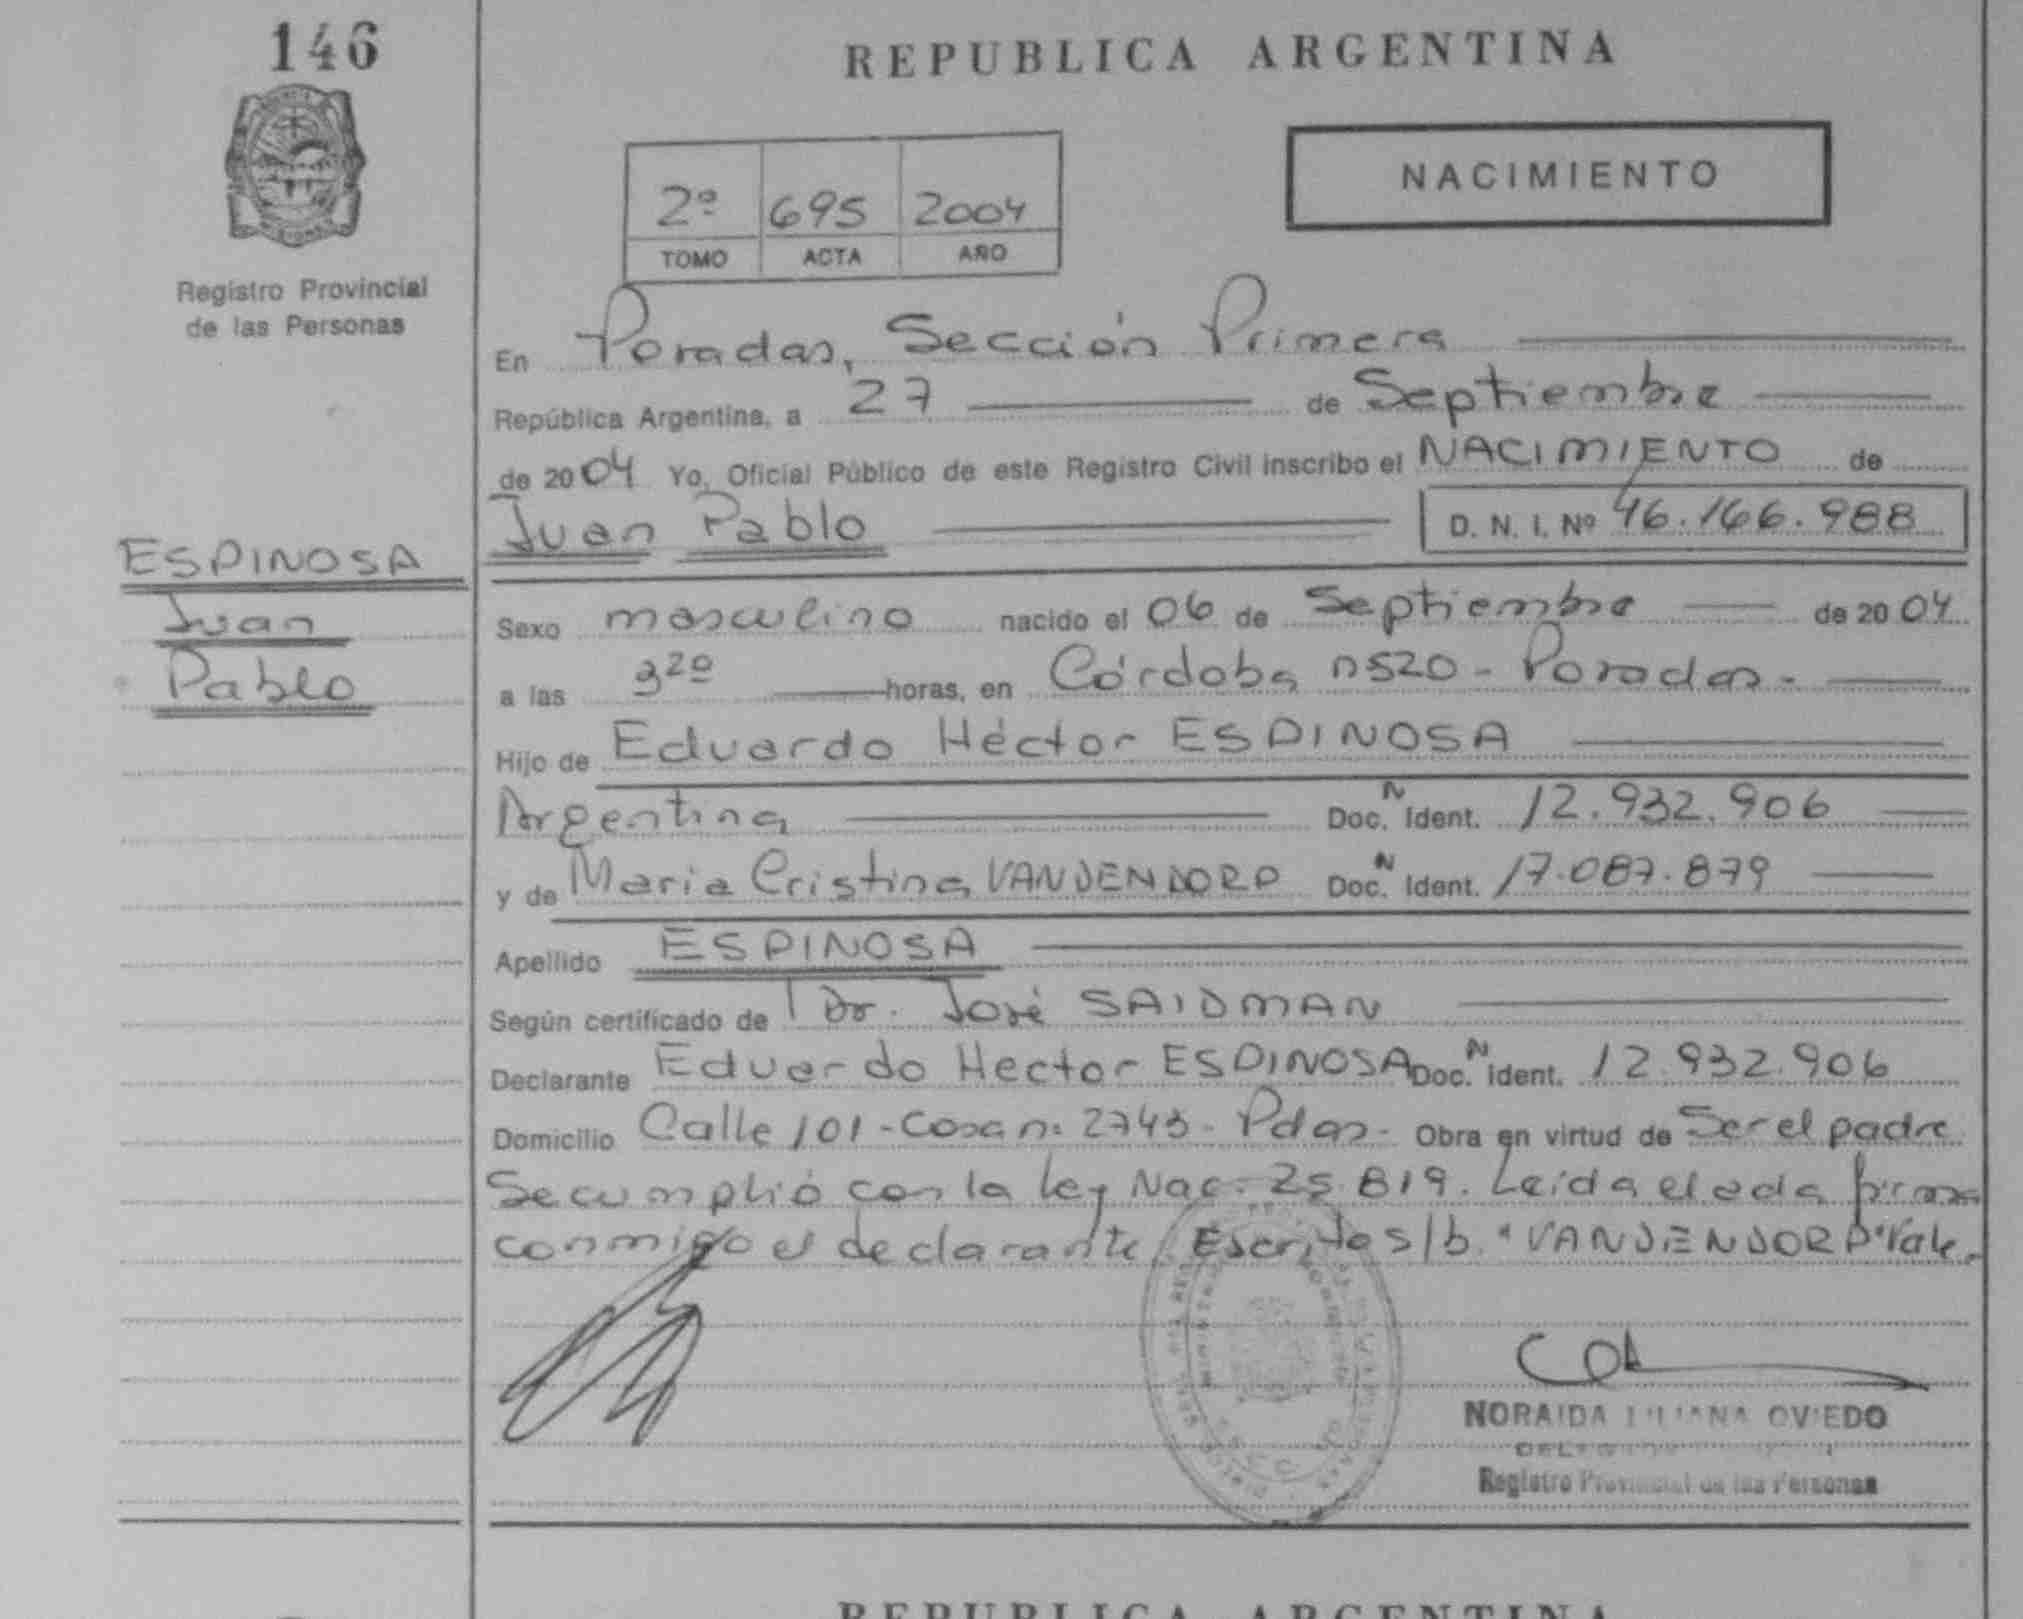 146
REPUBLICA ARGENTINA
NACIMIENTO
2º 695 2004
TOMO ACTA AÑO
Registro Provincial
de las Personas
En Posadas, Sección Primera
República Argentina, a 27 de Septiembre
de 2004 Yo, Oficial Público de este Registro Civil inscribo el NACIMIENTO de
Juan Pablo D. N. I. Nº 46.166.988
ESPINOSA
Juan
Pablo
Sexo masculino nacido el 06 de Septiembre de 2004
a las 3 20 horas, en Córdoba n520 - Posadas.-
Hijo de Eduardo Héctor ESPINOSA
Argentina Doc. N Ident. 12.932.906
y de Maria Cristina VANDENDORP Doc. N Ident. 17.087.879
Apellido ESPINOSA
Según certificado de Dr. José SAIDMAN
Declarante Eduardo Hector ESPINOSA Doc. N Ident. 12.932.906
Domicilio Calle 101 - Casa n: 2743 - Pdas- Obra en virtud de Ser el padre
Se cumplió con la Ley Nac. 25.819. Leída el acta firma
conmigo el declarante. Escrito s/b. "VANDENDORP" Vale.-
NORAIDA LILIANA OVIEDO
Registro Provincial de las Personas
REPUBLICA ARGENTINA